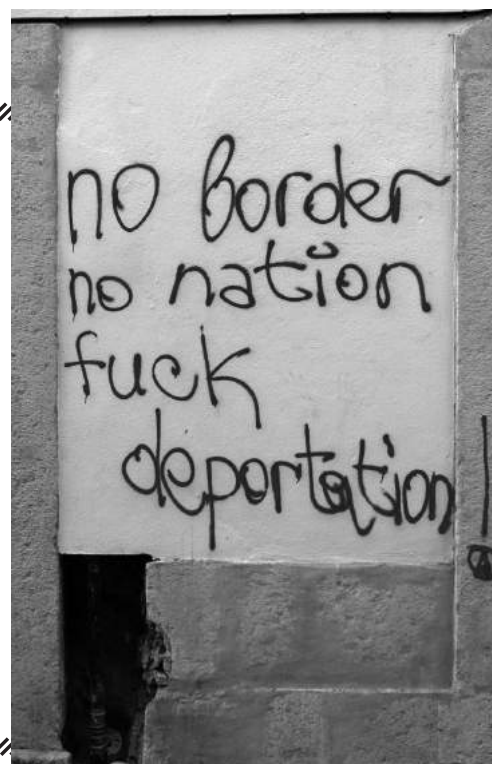 no border
no nation
fuck
deportation!